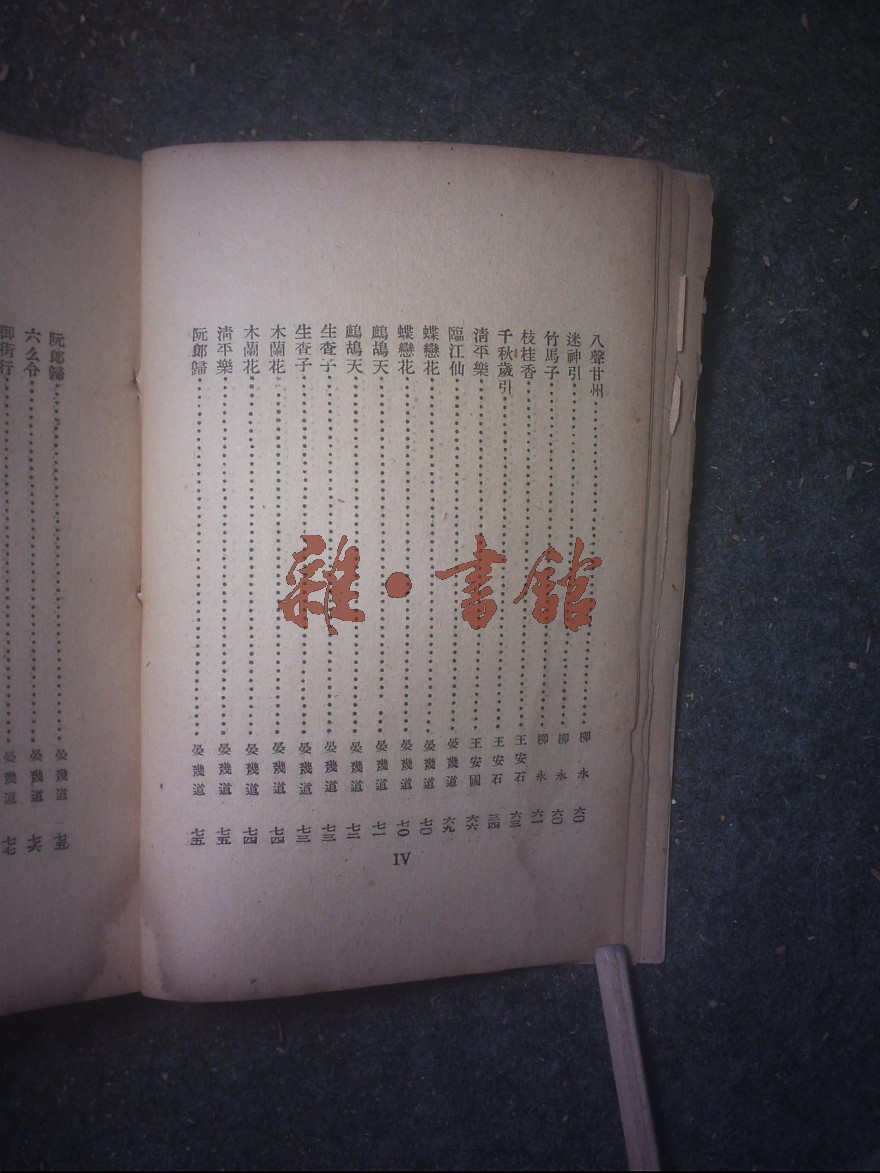 八聲甘州……柳永 六〇
迷神引……柳永 六〇
竹馬子……柳永 六一
枝桂香……王安石 六三
千秋歲引……王安石
清平樂……王安國 六六
臨江仙……晏幾道 六九
蝶戀花……晏幾道 七〇
蝶戀花……晏幾道 七〇
鷓鴣天……晏幾道 七一
鷓鴣天……晏幾道 七二
生查子……晏幾道 七三
生查子……晏幾道 七三
木蘭花……晏幾道 七四
木蘭花……晏幾道 七四
清平樂……晏幾道 七五
阮郎歸……晏幾道 七五
IV
阮郎歸……晏幾道 七五
六么令……晏幾道 七六
御街行……晏幾道 七七
雜·書館